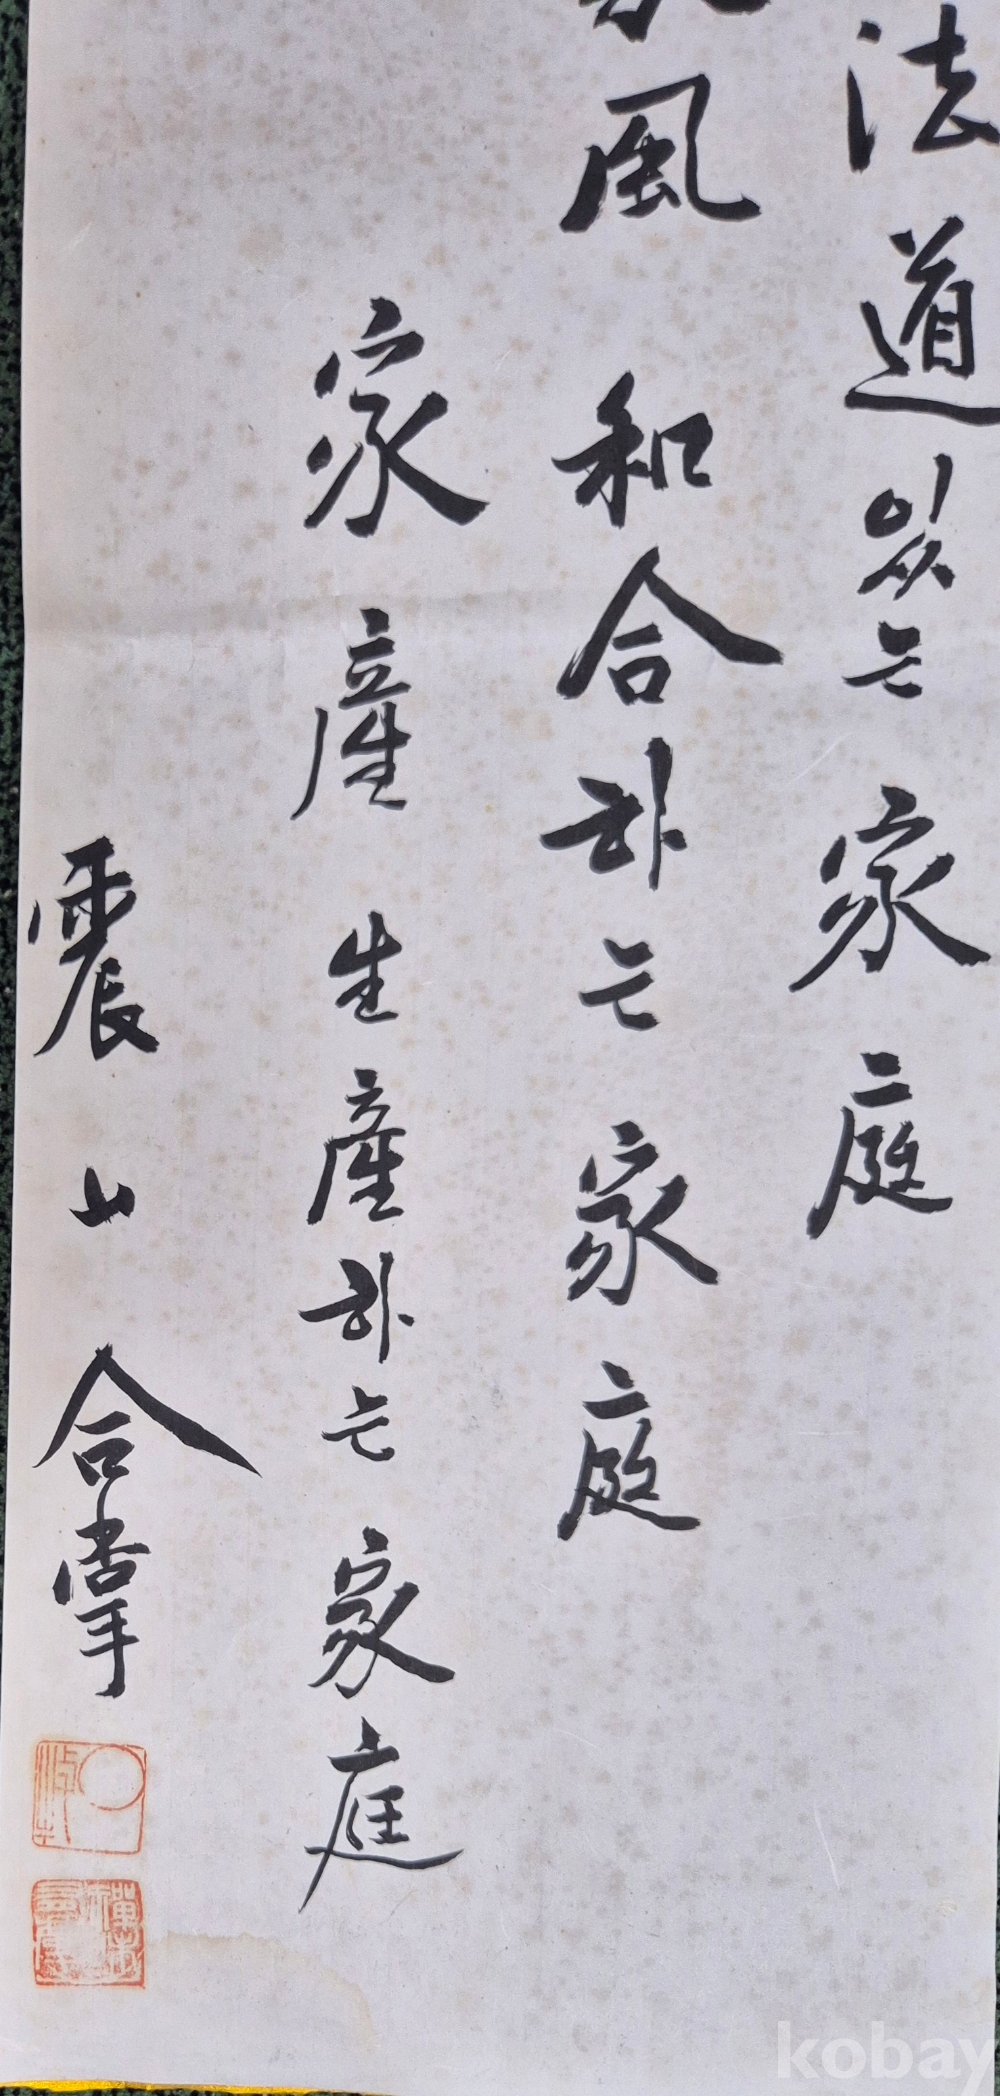 法道있는 家庭
家風 和合하는 家庭
家産 生産하는 家庭
震山 合掌
kobay